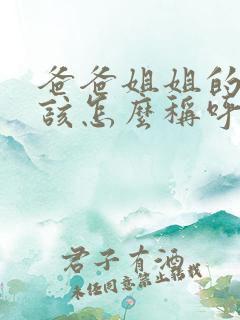 爸爸姐姐的
该怎麼稱呼
君子有酒
未经同意禁止转载